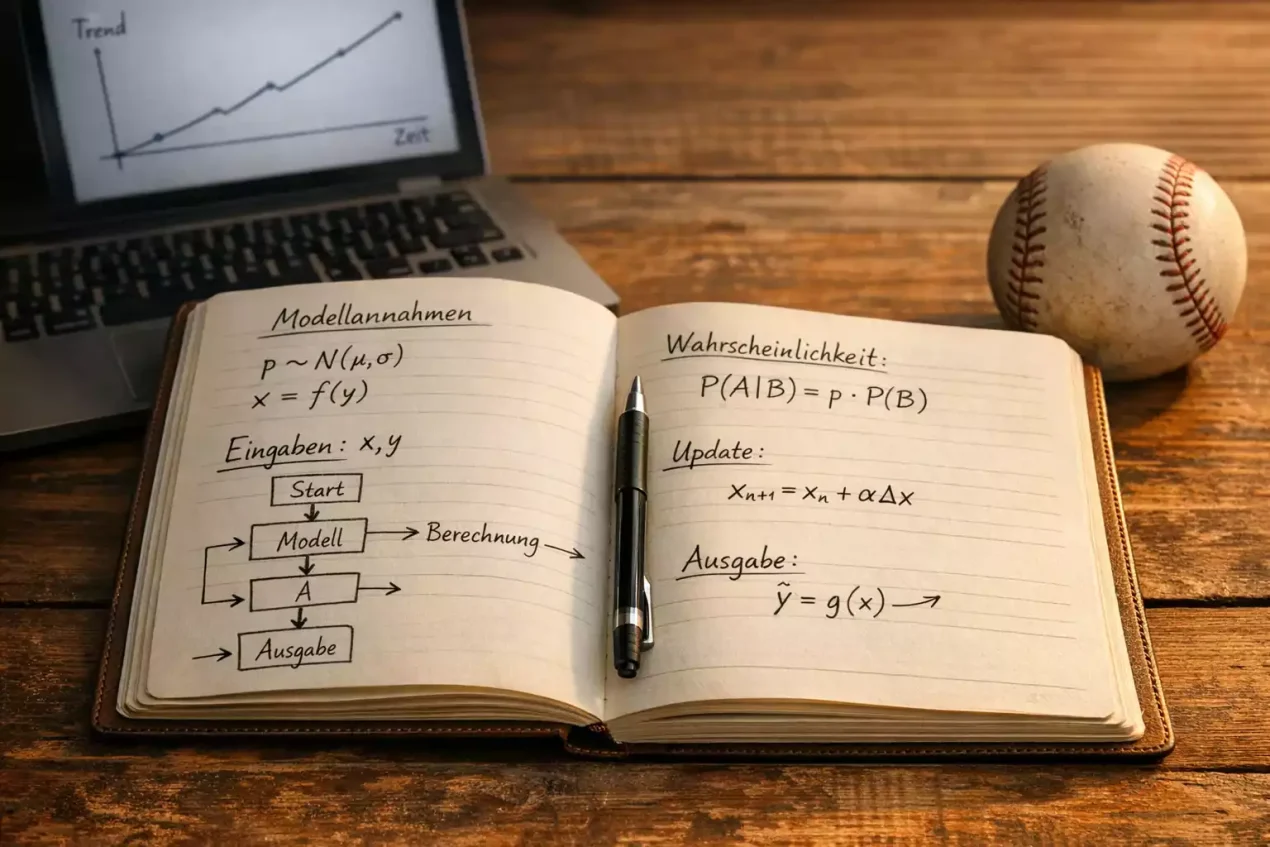 Trend
Zeit
Modellannahmen
p ~ N(μ, σ)
x = f(y)
Eingaben: x, y
Start
Modell → Berechnung →
A →
→ Ausgabe
Wahrscheinlichkeit:
P(A|B) = p · P(B)
Update:
xₙ₊₁ = xₙ + αΔx
Ausgabe:
ỹ = g(x) →